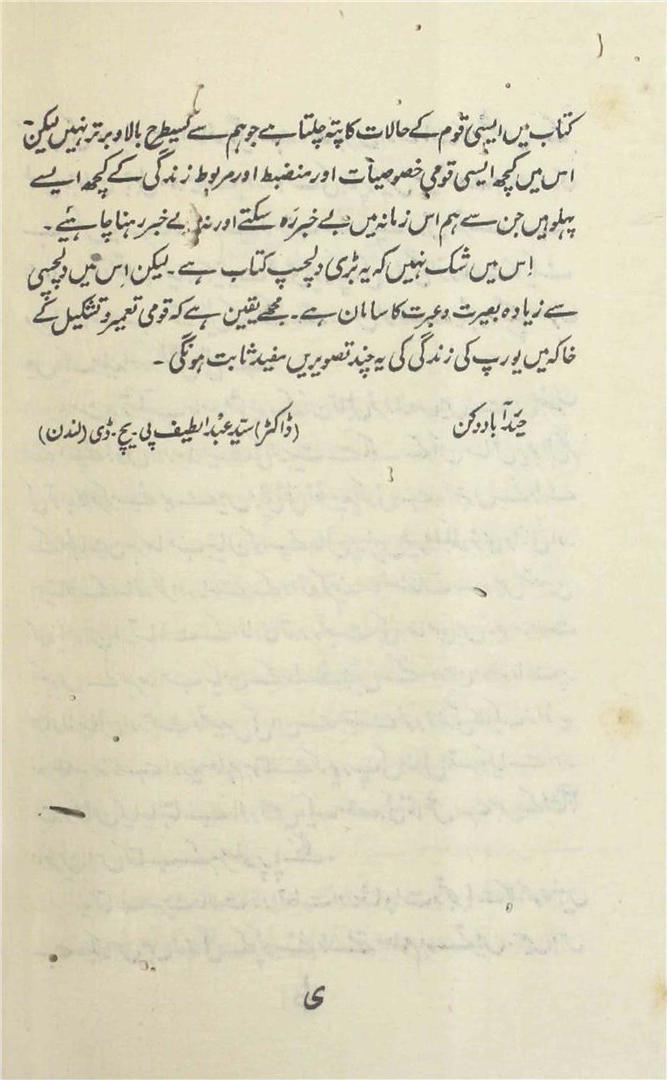 کتاب میں ایسی قوم کے حالات کا پتہ چلتا ہے جو ہم سے کسیطرح بالا و برتر نہیں لیکن
اس میں کچھ ایسی قومی خصوصیات اور منضبط اور مربوط زندگی کے کچھ ایسے
پہلو ہیں جن سے ہم اس زمانہ میں بے خبر رہ سکتے اور نہ بے خبر رہنا چاہئیے ۔
اِس میں شک نہیں کہ یہ بڑی دلچسپ کتاب ہے ۔ لیکن اِس میں دلچسپی
سے زیادہ بصیرت و عبرت کا سامان ہے ۔ مجھے یقین ہے کہ قومی تعمیر و تشکیل کے
خاکہ میں یورپ کی زندگی کی یہ چند تصویریں مفید ثابت ہونگی ۔
حیدآباد دکن (ڈاکٹر) سید عبد الطیف پی ۔ یچ ۔ ڈی (لندن)
ی